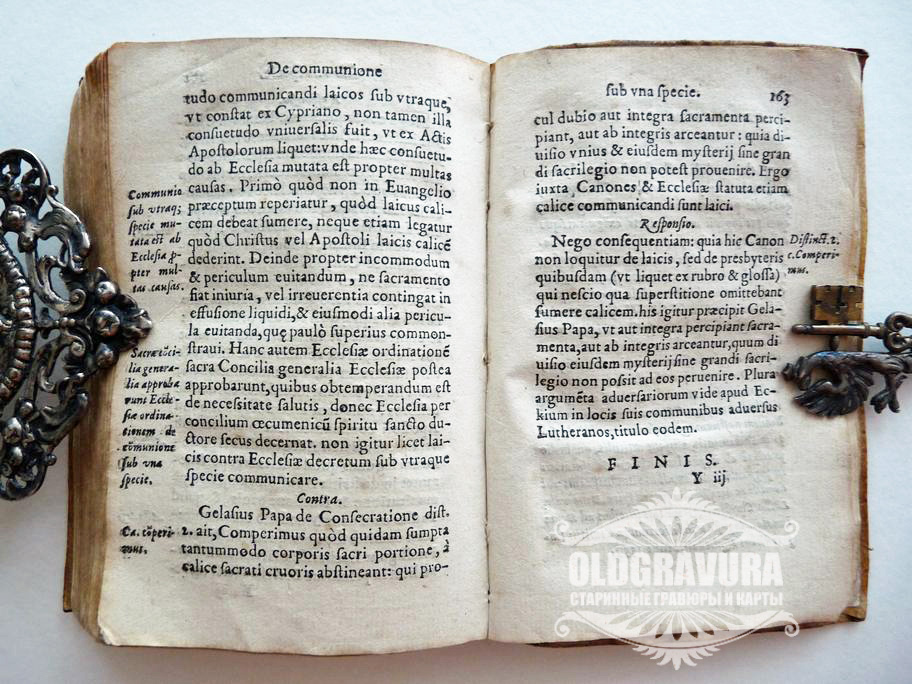 De communione
tudo communicandi laicos sub vtraque,
vt constat ex Cypriano, non tamen illa
consuetudo vniuersalis fuit, vt ex Actis
Apostolorum liquet: vnde hæc consuetu-
do ab Ecclesia mutata est propter multas
causas. Primò quòd non in Euangelio
præceptum reperiatur, quòd laicus cali-
cem debeat sumere, neque etiam legatur
quòd Christus vel Apostoli laicis calicē
dederint. Deinde propter incommodum
& periculum euitandum, ne sacramento
fiat iniuria, vel irreuerentia contingat in
effusione liquidi, & eiusmodi alia pericu-
la euitanda, quę paulò superius common-
straui. Hanc autem Ecclesiæ ordinationē
sacra Concilia generalia Ecclesiæ postea
approbarunt, quibus obtemperandum est
de necessitate salutis, donec Ecclesia per
concilium œcumenicū spiritu sancto du-
ctore secus decernat. non igitur licet lai-
cis contra Ecclesiæ decretum sub vtraque
specie communicare.
Contra.
Gelasius Papa de Consecratione dist.
2. ait, Comperimus quòd quidam sumpta
tantummodo corporis sacri portione, à
calice sacrati cruoris abstineant: qui pro-
Communio
sub vtraq;
specie mu-
tata est ab
Ecclesia p-
pter mul-
tas causas.
Sacra cōci-
lia genera-
lia approba
runt Eccle-
siæ ordina-
tionem de
cōmunione
sub vna
specie.
Ca. cōperi-
mus.
sub vna specie. 163
cul dubio aut integra sacramenta perci-
piant, aut ab integris arceantur: quia di-
uisio vnius & eiusdem mysterij sine gran
di sacrilegio non potest prouenire. Ergo
iuxta Canones & Ecclesiæ statuta etiam
calice communicandi sunt laici.
Responsio.
Nego consequentiam: quia hic Canon
non loquitur de laicis, sed de presbyteris
quibusdam (vt liquet ex rubro & glossa)
qui nescio qua superstitione omittebant
sumere calicem. his igitur præcipit Gela-
sius Papa, vt aut integra percipiant sacra-
menta, aut ab integris arceantur, quum di
uisio eiusdem mysterij sine grandi sacri-
legio non possit ad eos peruenire. Plura
argumēta aduersariorum vide apud Ec-
kium in locis suis communibus aduersus
Lutheranos, titulo eodem.
Distinct. 2.
c. Comperi-
mus.
FINIS.
Y iij
OLDGRAVURA
СТАРИННЫЕ ГРАВЮРЫ И КАРТЫ